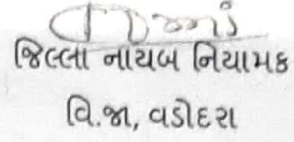 જિલ્લા નાયબ નિયામક
વિ.જા, વડોદરા